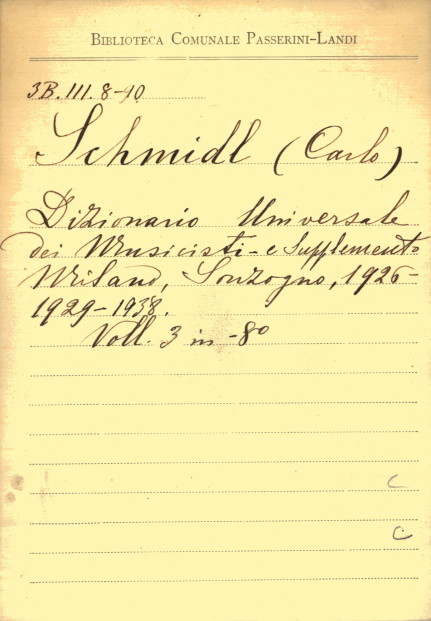 BIBLIOTECA COMUNALE PASSERINI-LANDI
3B.III.8-10
Schmidl (Carlo)
Dizionario Universale
dei Musicisti e Supplemento
Milano, Sonzogno, 1926-
1929-1938.
Voll. 3 in -8º
C
C